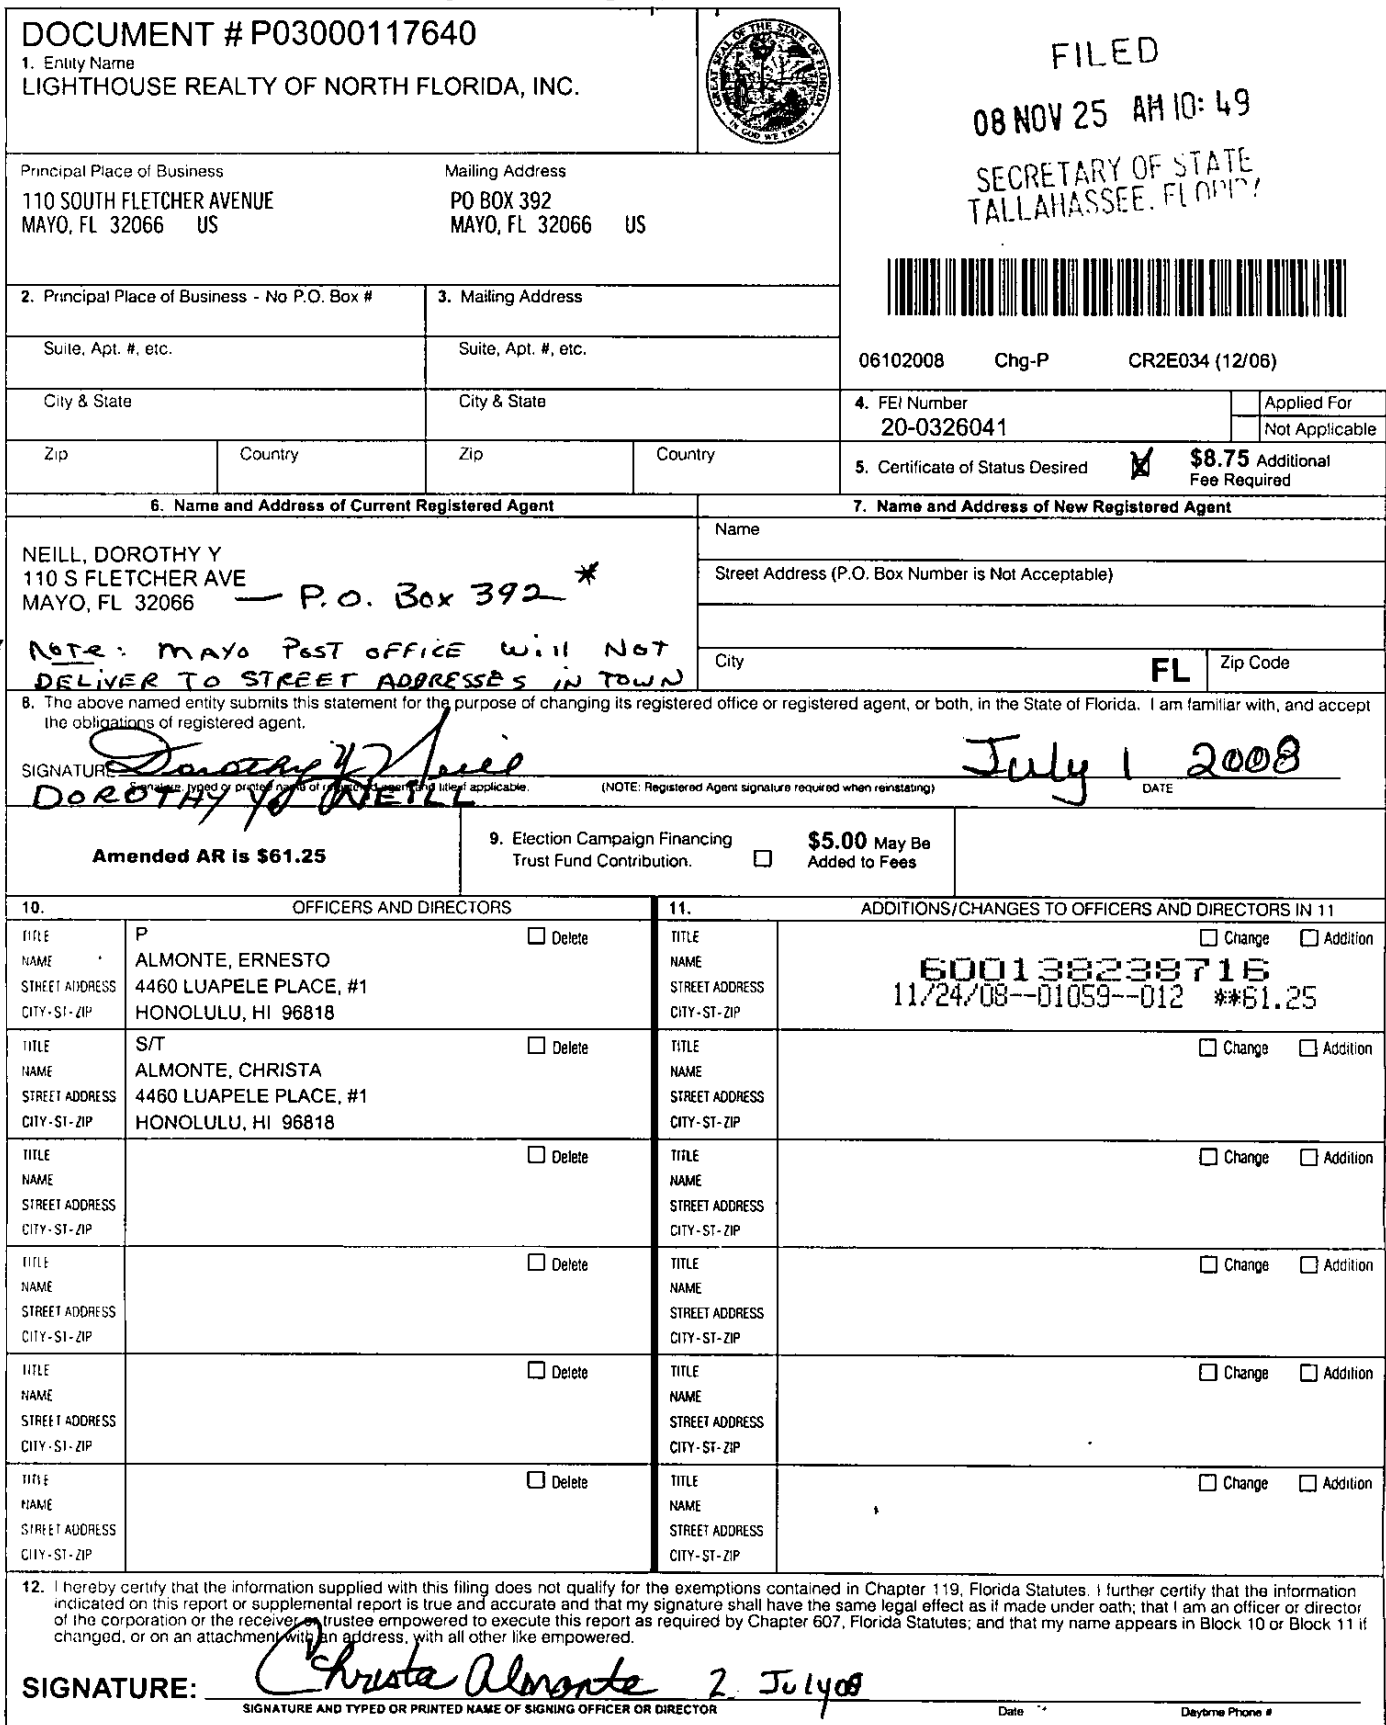 DOCUMENT # P03000117640
1. Entity Name
LIGHTHOUSE REALTY OF NORTH FLORIDA, INC.
GREAT SEAL OF THE STATE OF FLORIDA
IN GOD WE TRUST
FILED
08 NOV 25 AM 10: 49
SECRETARY OF STATE
TALLAHASSEE, FLORIDA
Principal Place of Business
110 SOUTH FLETCHER AVENUE
MAYO, FL 32066 US
Mailing Address
PO BOX 392
MAYO, FL 32066 US
2. Principal Place of Business - No P.O. Box #
3. Mailing Address
Suite, Apt. #, etc.
Suite, Apt. #, etc.
06102008 Chg-P CR2E034 (12/06)
City & State
City & State
4. FEI Number
20-0326041
Applied For
Not Applicable
Zip
Country
Zip
Country
5. Certificate of Status Desired
$8.75 Additional
Fee Required
6. Name and Address of Current Registered Agent
7. Name and Address of New Registered Agent
NEILL, DOROTHY Y
110 S FLETCHER AVE
MAYO, FL 32066 — P.O. Box 392 *
NOTE: MAYO POST OFFICE Will NOT
DELIVER TO STREET ADDRESSES IN TOWN
Name
Street Address (P.O. Box Number is Not Acceptable)
City
FL
Zip Code
8. The above named entity submits this statement for the purpose of changing its registered office or registered agent, or both, in the State of Florida. I am familiar with, and accept
the obligations of registered agent.
SIGNATURE Dorothy Y Neill July 1 2008
Signature, typed or printed name of registered agent and title if applicable.
(NOTE: Registered Agent signature required when reinstating)
DATE
DOROTHY Y. NEILL
Amended AR is $61.25
9. Election Campaign Financing
Trust Fund Contribution.
$5.00 May Be
Added to Fees
10. OFFICERS AND DIRECTORS
11. ADDITIONS/CHANGES TO OFFICERS AND DIRECTORS IN 11
TITLE P Delete
NAME ALMONTE, ERNESTO
STREET ADDRESS 4460 LUAPELE PLACE, #1
CITY-ST-ZIP HONOLULU, HI 96818
TITLE Change Addition
NAME 600138238716
STREET ADDRESS 11/24/08--01059--012 **61.25
CITY-ST-ZIP
TITLE S/T Delete
NAME ALMONTE, CHRISTA
STREET ADDRESS 4460 LUAPELE PLACE, #1
CITY-ST-ZIP HONOLULU, HI 96818
TITLE Change Addition
NAME
STREET ADDRESS
CITY-ST-ZIP
TITLE Delete
NAME
STREET ADDRESS
CITY-ST-ZIP
TITLE Change Addition
NAME
STREET ADDRESS
CITY-ST-ZIP
TITLE Delete
NAME
STREET ADDRESS
CITY-ST-ZIP
TITLE Change Addition
NAME
STREET ADDRESS
CITY-ST-ZIP
TITLE Delete
NAME
STREET ADDRESS
CITY-ST-ZIP
TITLE Change Addition
NAME
STREET ADDRESS
CITY-ST-ZIP
TITLE Delete
NAME
STREET ADDRESS
CITY-ST-ZIP
TITLE Change Addition
NAME
STREET ADDRESS
CITY-ST-ZIP
12. I hereby certify that the information supplied with this filing does not qualify for the exemptions contained in Chapter 119, Florida Statutes. I further certify that the information
indicated on this report or supplemental report is true and accurate and that my signature shall have the same legal effect as if made under oath; that I am an officer or director
of the corporation or the receiver or trustee empowered to execute this report as required by Chapter 607, Florida Statutes; and that my name appears in Block 10 or Block 11 if
changed, or on an attachment with an address, with all other like empowered.
SIGNATURE: Christa Almonte 2 July 08
SIGNATURE AND TYPED OR PRINTED NAME OF SIGNING OFFICER OR DIRECTOR
Date
Daytime Phone #